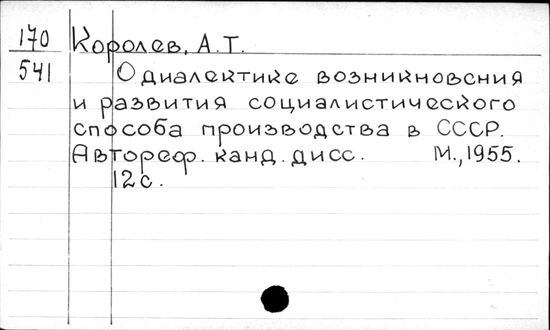 170 Королев, А.Т.
541 О диалектике возникновения
и развития социалистического
способа производства в СССР.
Автореф. канд. дисс. М., 1955.
12с.